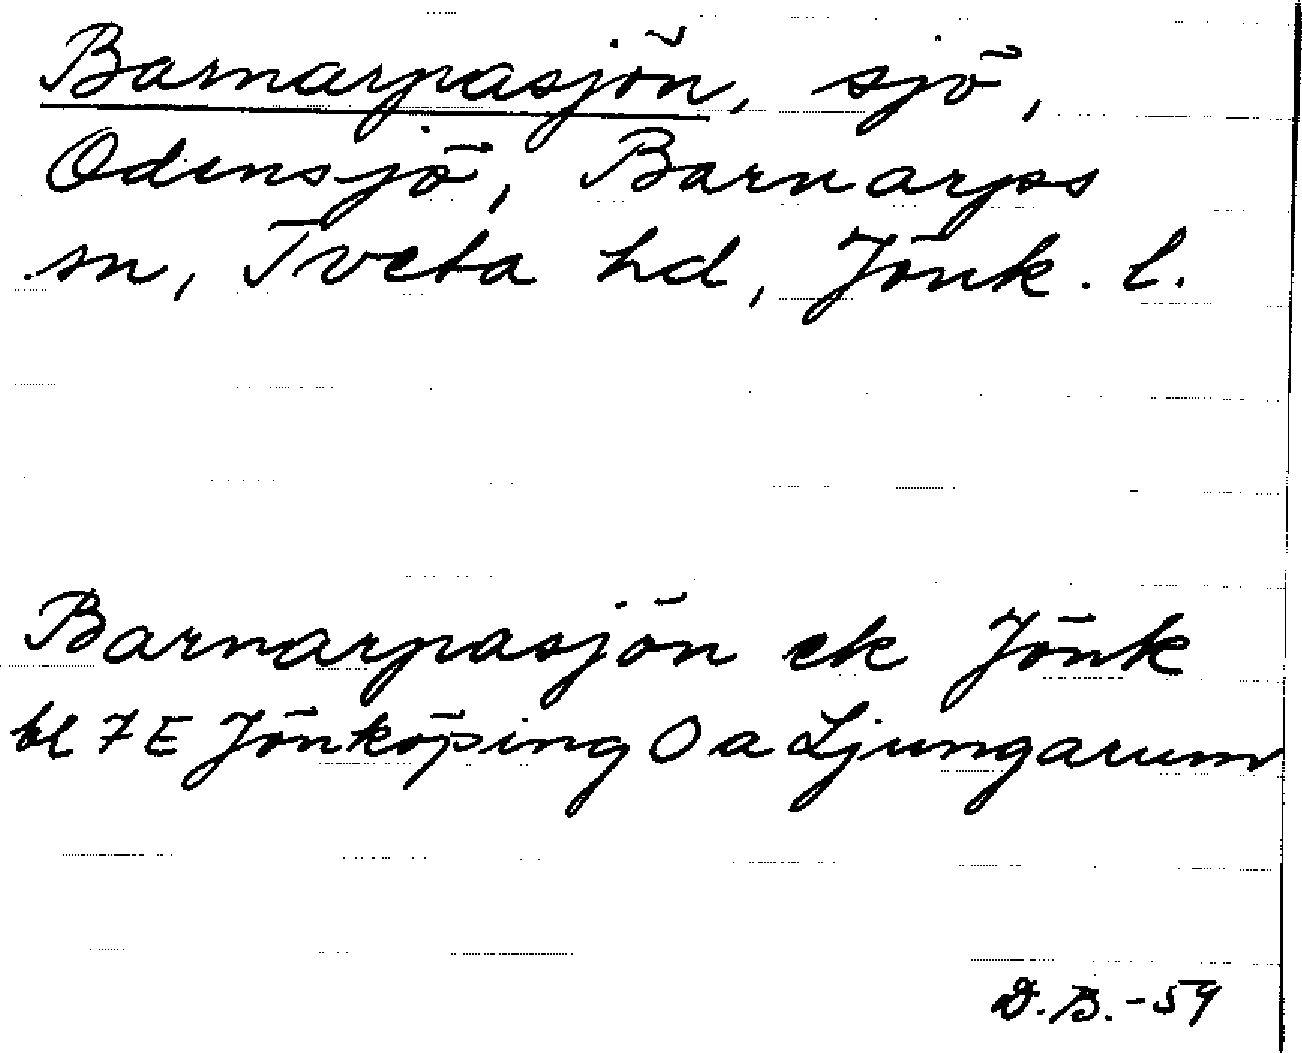 Barnarpasjön, sjö,
Odensjö, Barnarps
sn, Tveta hd, Jönk. l.
Barnarpasjön ek Jönk
bl 7 E Jönköping O a Ljungarum
D.B.-59